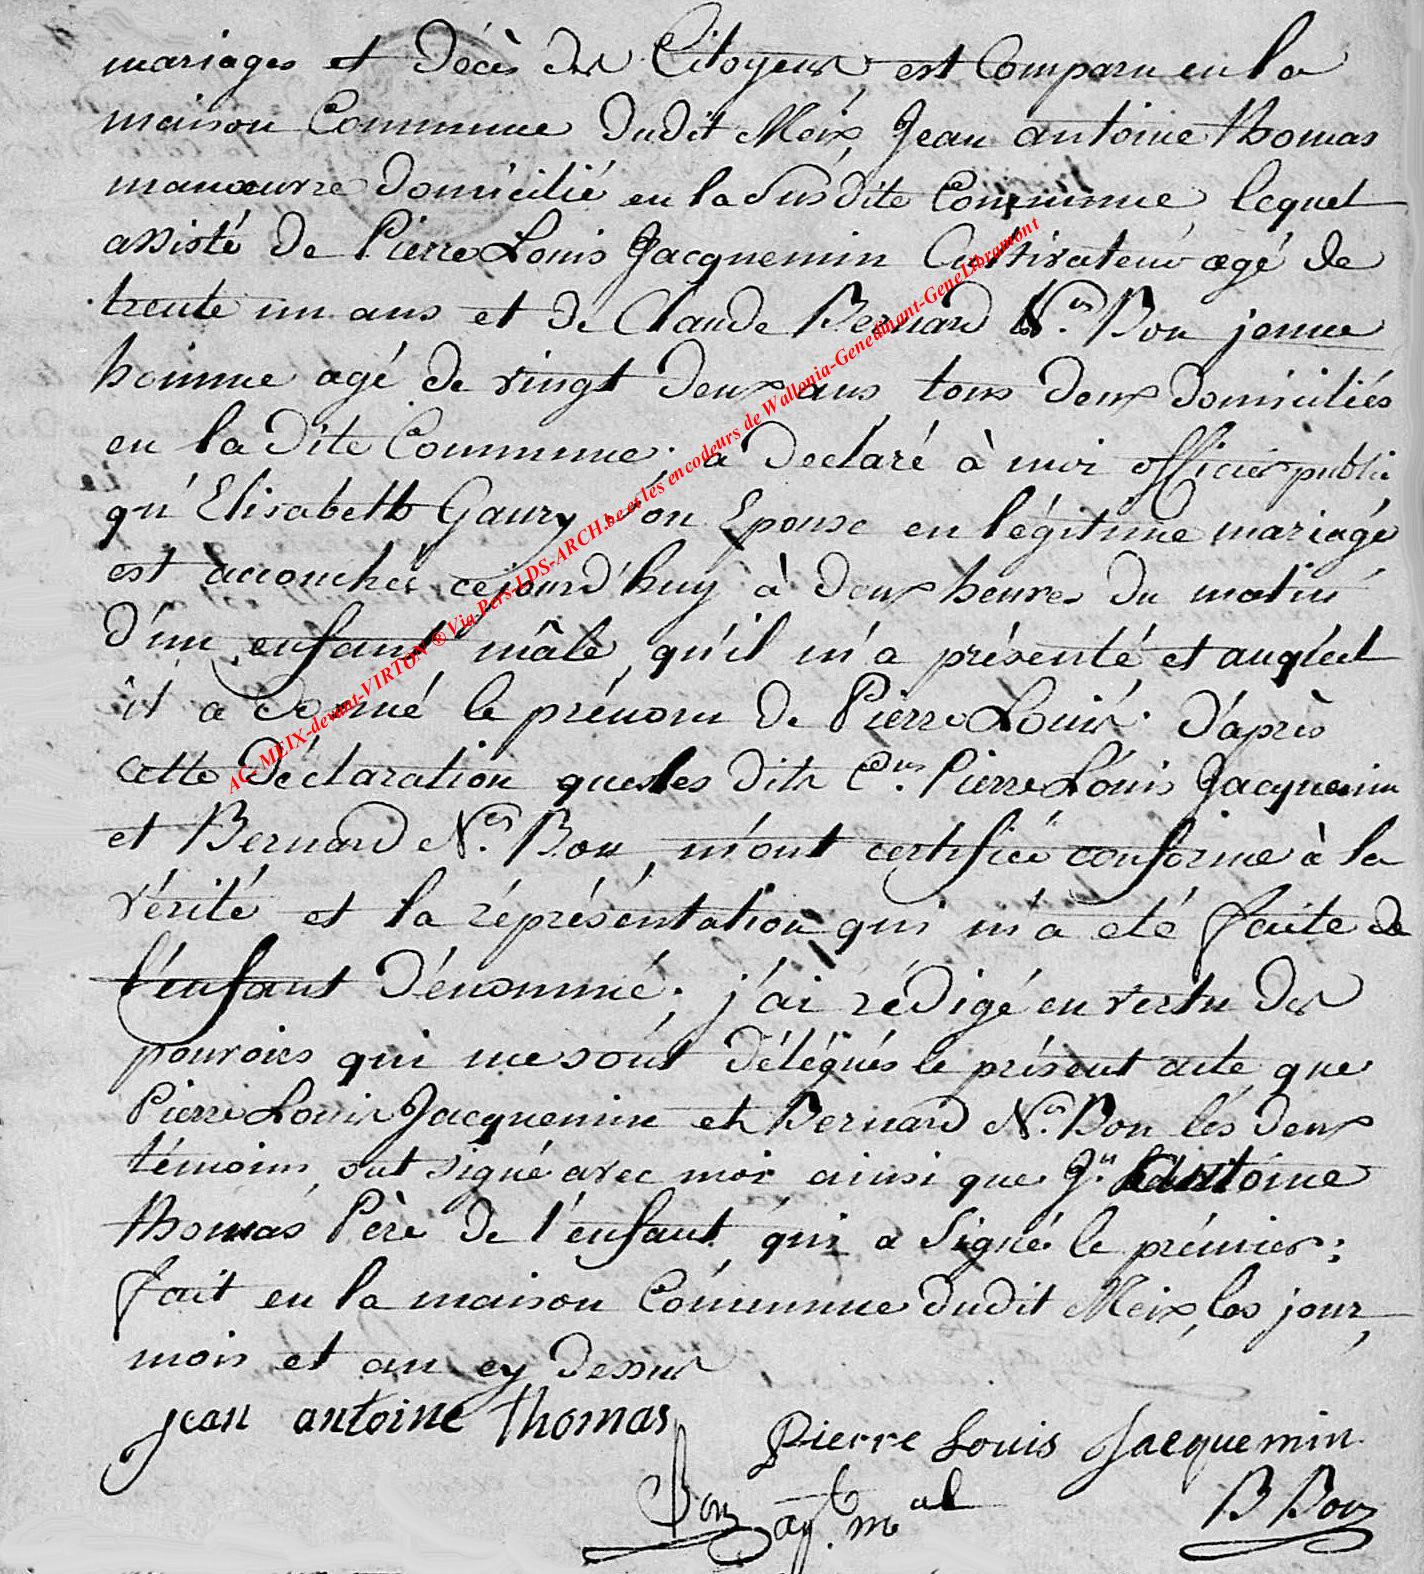 mariages et décès des Citoyens, est Comparu en la
maison Commune dudit Meix, Jean antoine thomas
manœuvre domicilié en la Susdite Commune, lequel
assisté de Pierre Louis Jacquemin Cultivateur agé de
trente un ans et de Claude Bernard N.as Bon jeune
homme agé de vingt deux ans tous deux domiciliés
en la dite Commune; a declaré à moi officier public
qu'Elisabeth Gaury son Epouse en légitime mariage
est accouchée cejourd'huy à deux heures du matin
d'un enfant mâle, qu'il m'a présenté et auquel
il a donné le prénom de Pierre Louis. d'après
cette déclaration que les dits C.ens Pierre Louis Jacquemin
et Bernard N.as Bon, m'ont certifiée conforme à la
vérité et la réprésentation qui m'a eté faite de
l'enfant dénommé; j'ai rédigé en vertu des
pouvoirs qui me sont délégués le présent acte que
Pierre Louis Jacquemin et Bernard N.as Bon les deux
témoins, ont signé avec moi ainsi que J.n antoine
thomas Père de l'enfant, qui a signé le prémier;
fait en la maison Commune dudit Meix, les jour,
mois et an cy dessus
jean antoine thomas
Pierre Louis Jacquemin
Bon agt. mal
B Bon
AC-MEIX-devant-VIRTON ® Via Pers-LDS-ARCH.be et les encodeurs de Wallonia-Genedinant-GeneLibramont